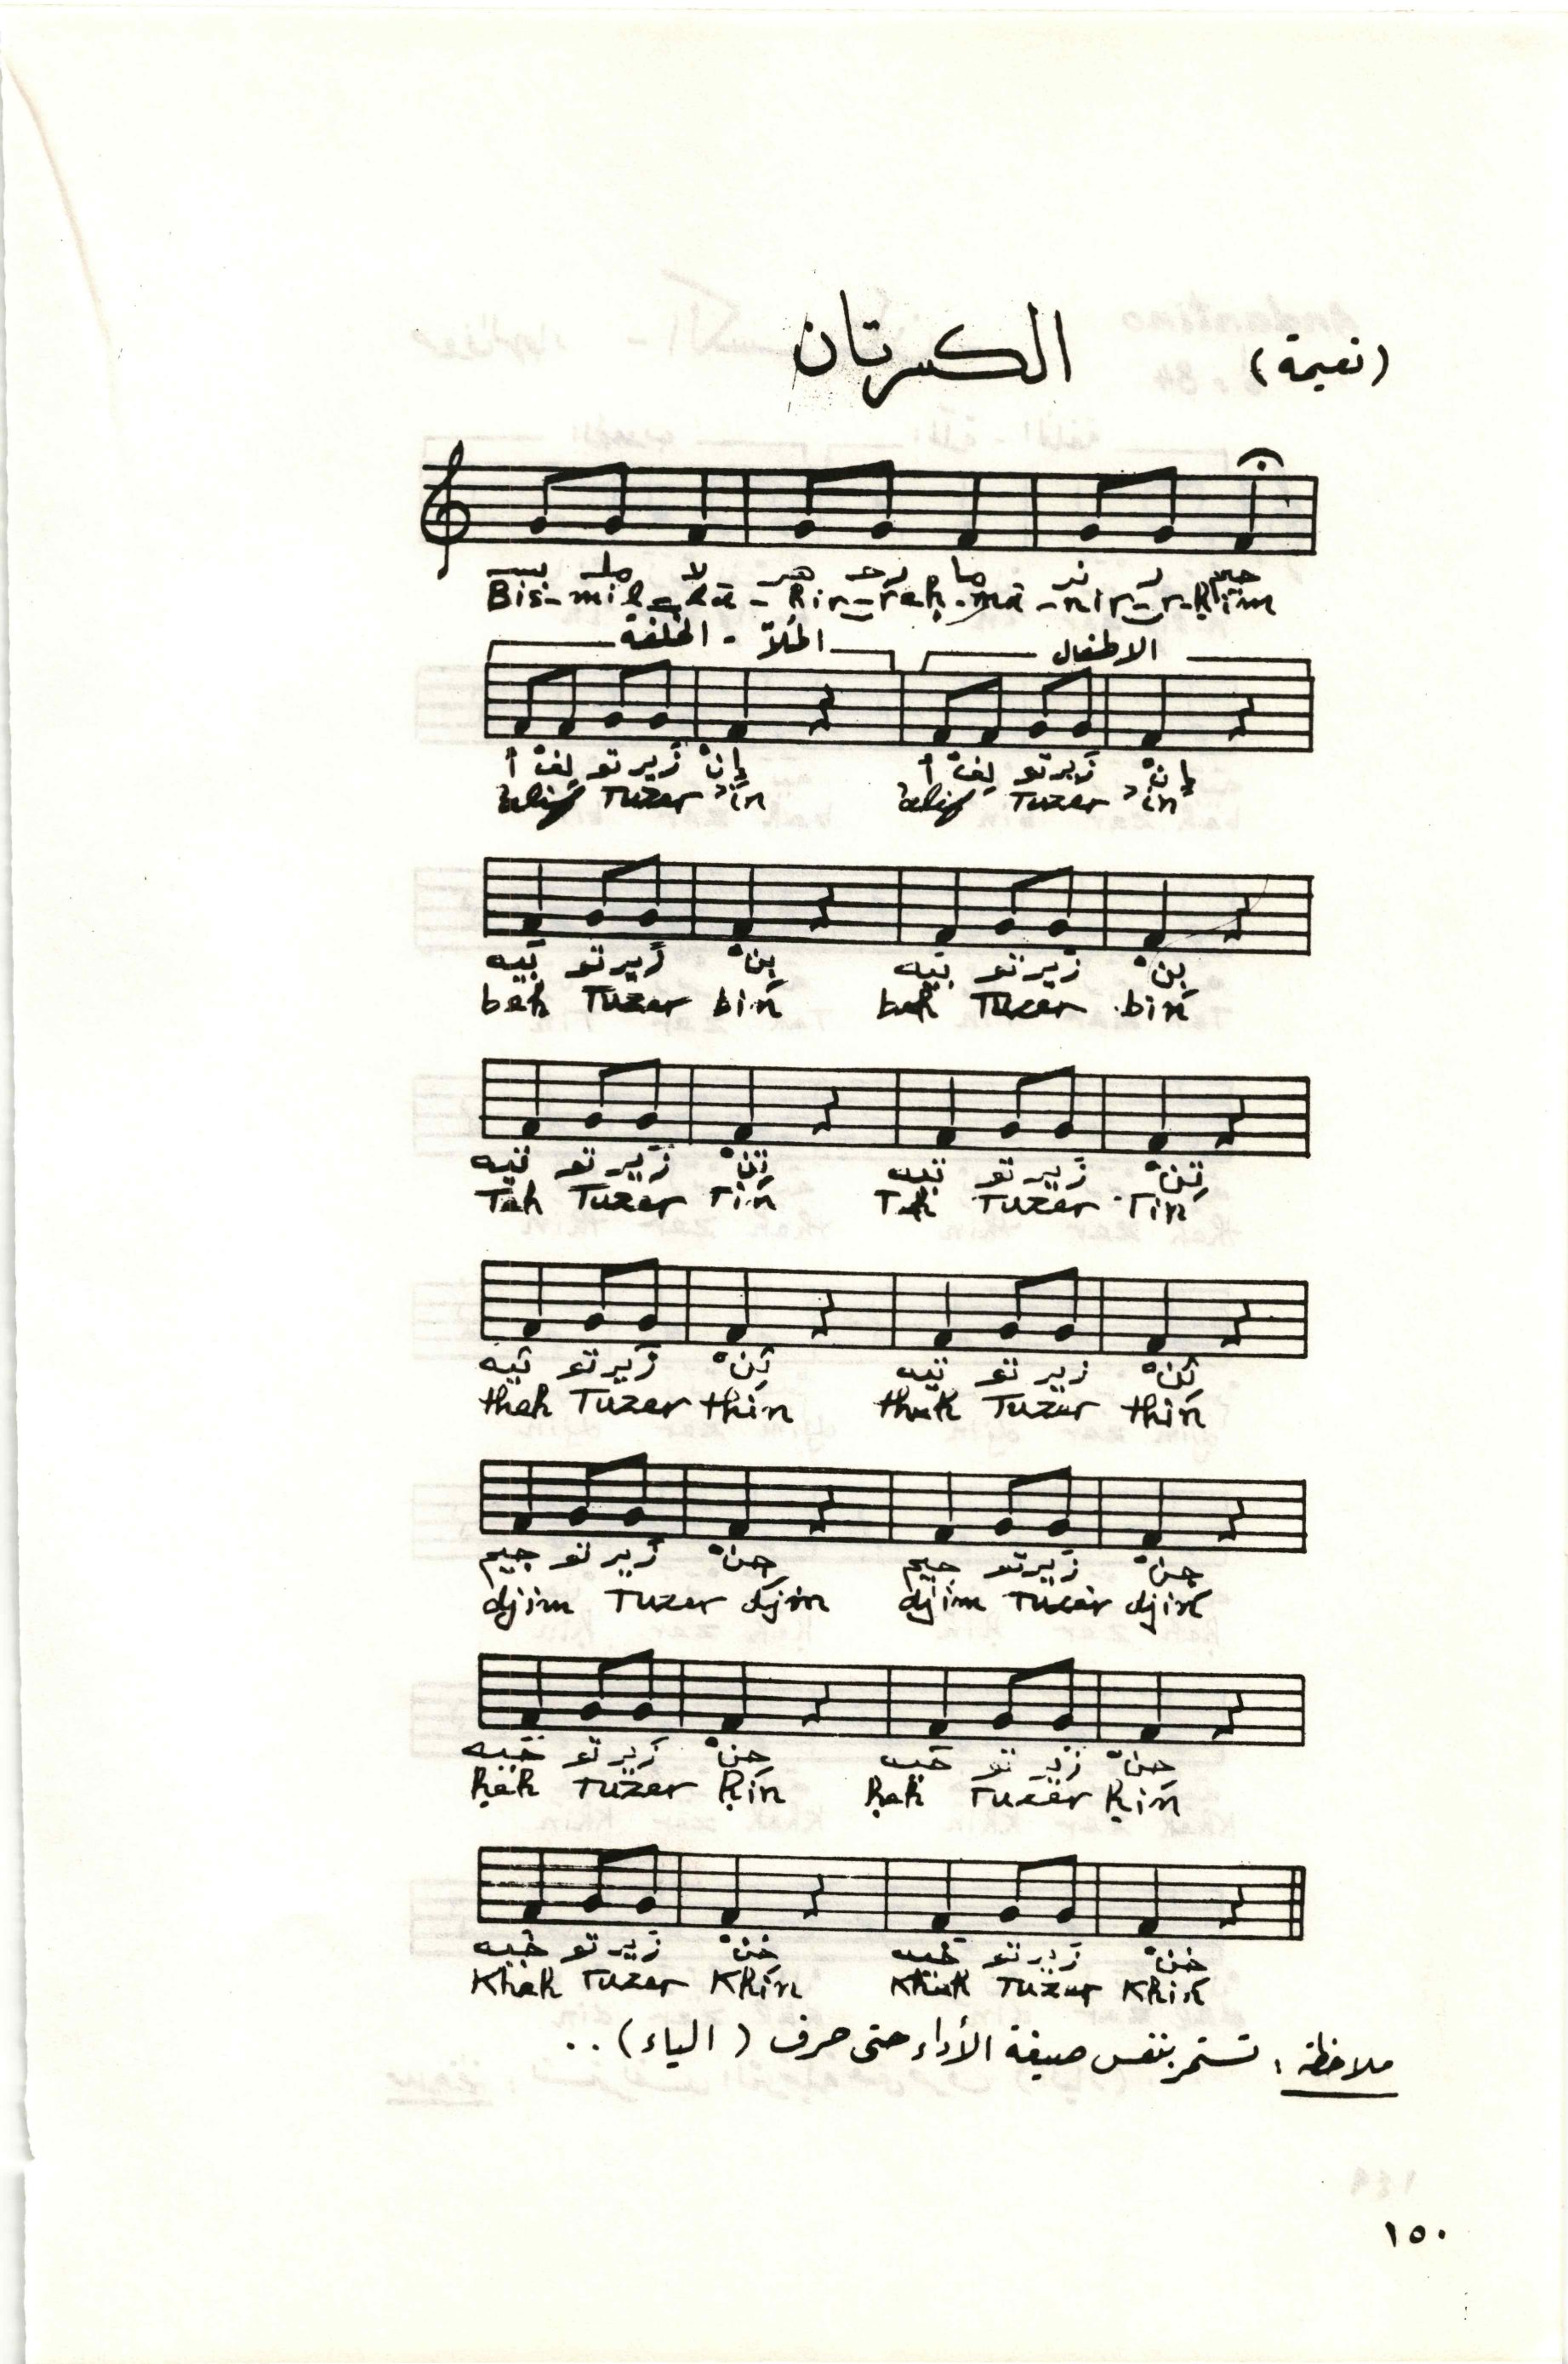 (نعيمة) الكسرتان
بسـ ملـ لا هر رحـ ما نر ر حيم
Bis-mil-lā-hir-raḥ-mā-nir-r-ḥīm
المُلاّ - الخلفة الاطفال
أ لِفْ تو زَير إنْ أ لِفْ تو زَير إنْ
'alif Tuzer 'in 'alif Tuzer 'in
بَيه تو زَير بِنْ بَيه تو زَير بِنْ
beh Tuzer bin beh Tuzer bin
تَيه تو زَير تِنْ تَيه تو زَير تِنْ
Teh Tuzer Tin Teh Tuzer Tin
ثَيه تو زَير ثِنْ ثَيه تو زير ثِنْ
theh Tuzer thin theh Tuzer thin
جيم تو زَير جِنْ جيم تو زَير جِنْ
djim Tuzer djin djim Tuzer djin
حَيه تو زَير حِنْ حَيه تو زَير حِنْ
ḥeh Tuzer ḥin ḥeh Tuzer ḥin
خَيه تو زَير خِنْ خَيه تو زَير خِنْ
Kheh Tuzer Khin Kheh Tuzer Khin
ملاحظة : تستمر بنفس صيغة الأداء حتى حرف (الياء) ..
١٥٠